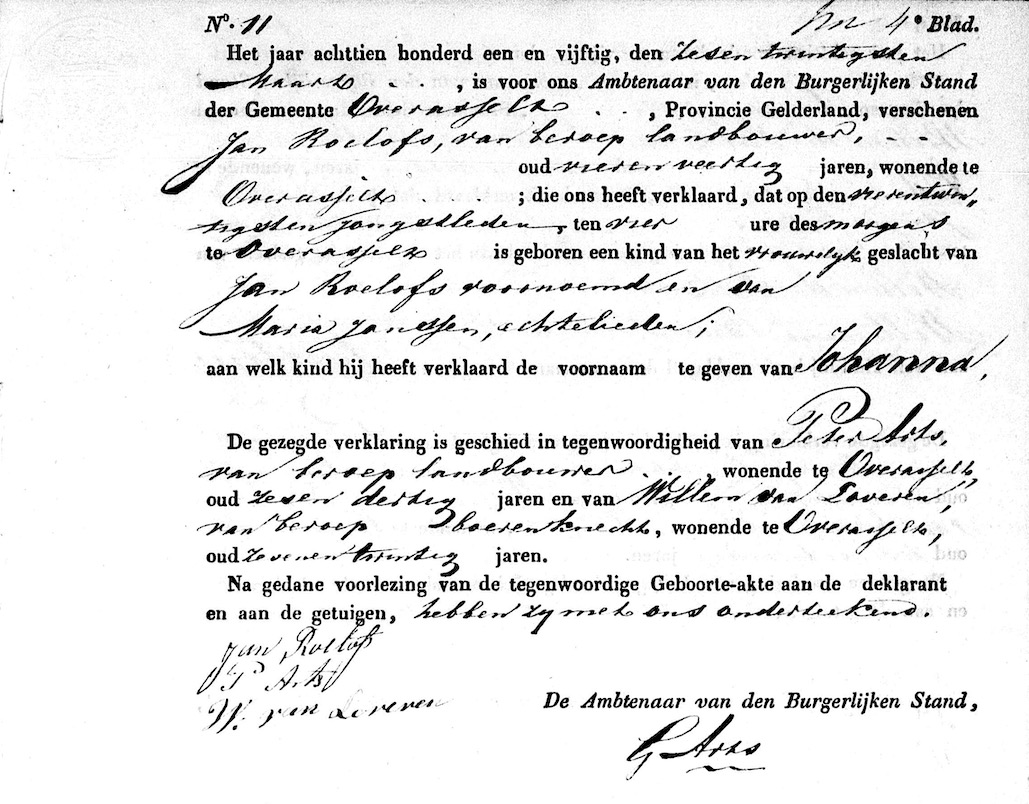 N.º 11 4e Blad.
Het jaar achttien honderd een en vijftig, den zesentwintigsten
Maart . . . , is voor ons Ambtenaar van den Burgerlijken Stand
der Gemeente Overasselt . . . , Provincie Gelderland, verschenen
Jan Roelofs, van beroep landbouwer, - -
oud vierenveertig jaren, wonende te
Overasselt ; die ons heeft verklaard, dat op den vierentwin„
tigsten jongstleden, ten vier ure des morgens
te Overasselt is geboren een kind van het vrouwelijk geslacht van
Jan Roelofs voornoemd en van
Maria Janssen, echtelieden;
aan welk kind hij heeft verklaard de voornaam te geven van Johanna,
De gezegde verklaring is geschied in tegenwoordigheid van Peter Arts,
van beroep landbouwer . . , wonende te Overasselt,
oud zesendertig jaren en van Willem van Loveren,
van beroep boerenknecht, wonende te Overasselt,
oud zevenentwintig jaren.
Na gedane voorlezing van de tegenwoordige Geboorte-akte aan de deklarant
en aan de getuigen, hebben zy met ons onderteekend.
Jan Roelofs
P Arts
W. van Loveren
De Ambtenaar van den Burgerlijken Stand,
G Arts